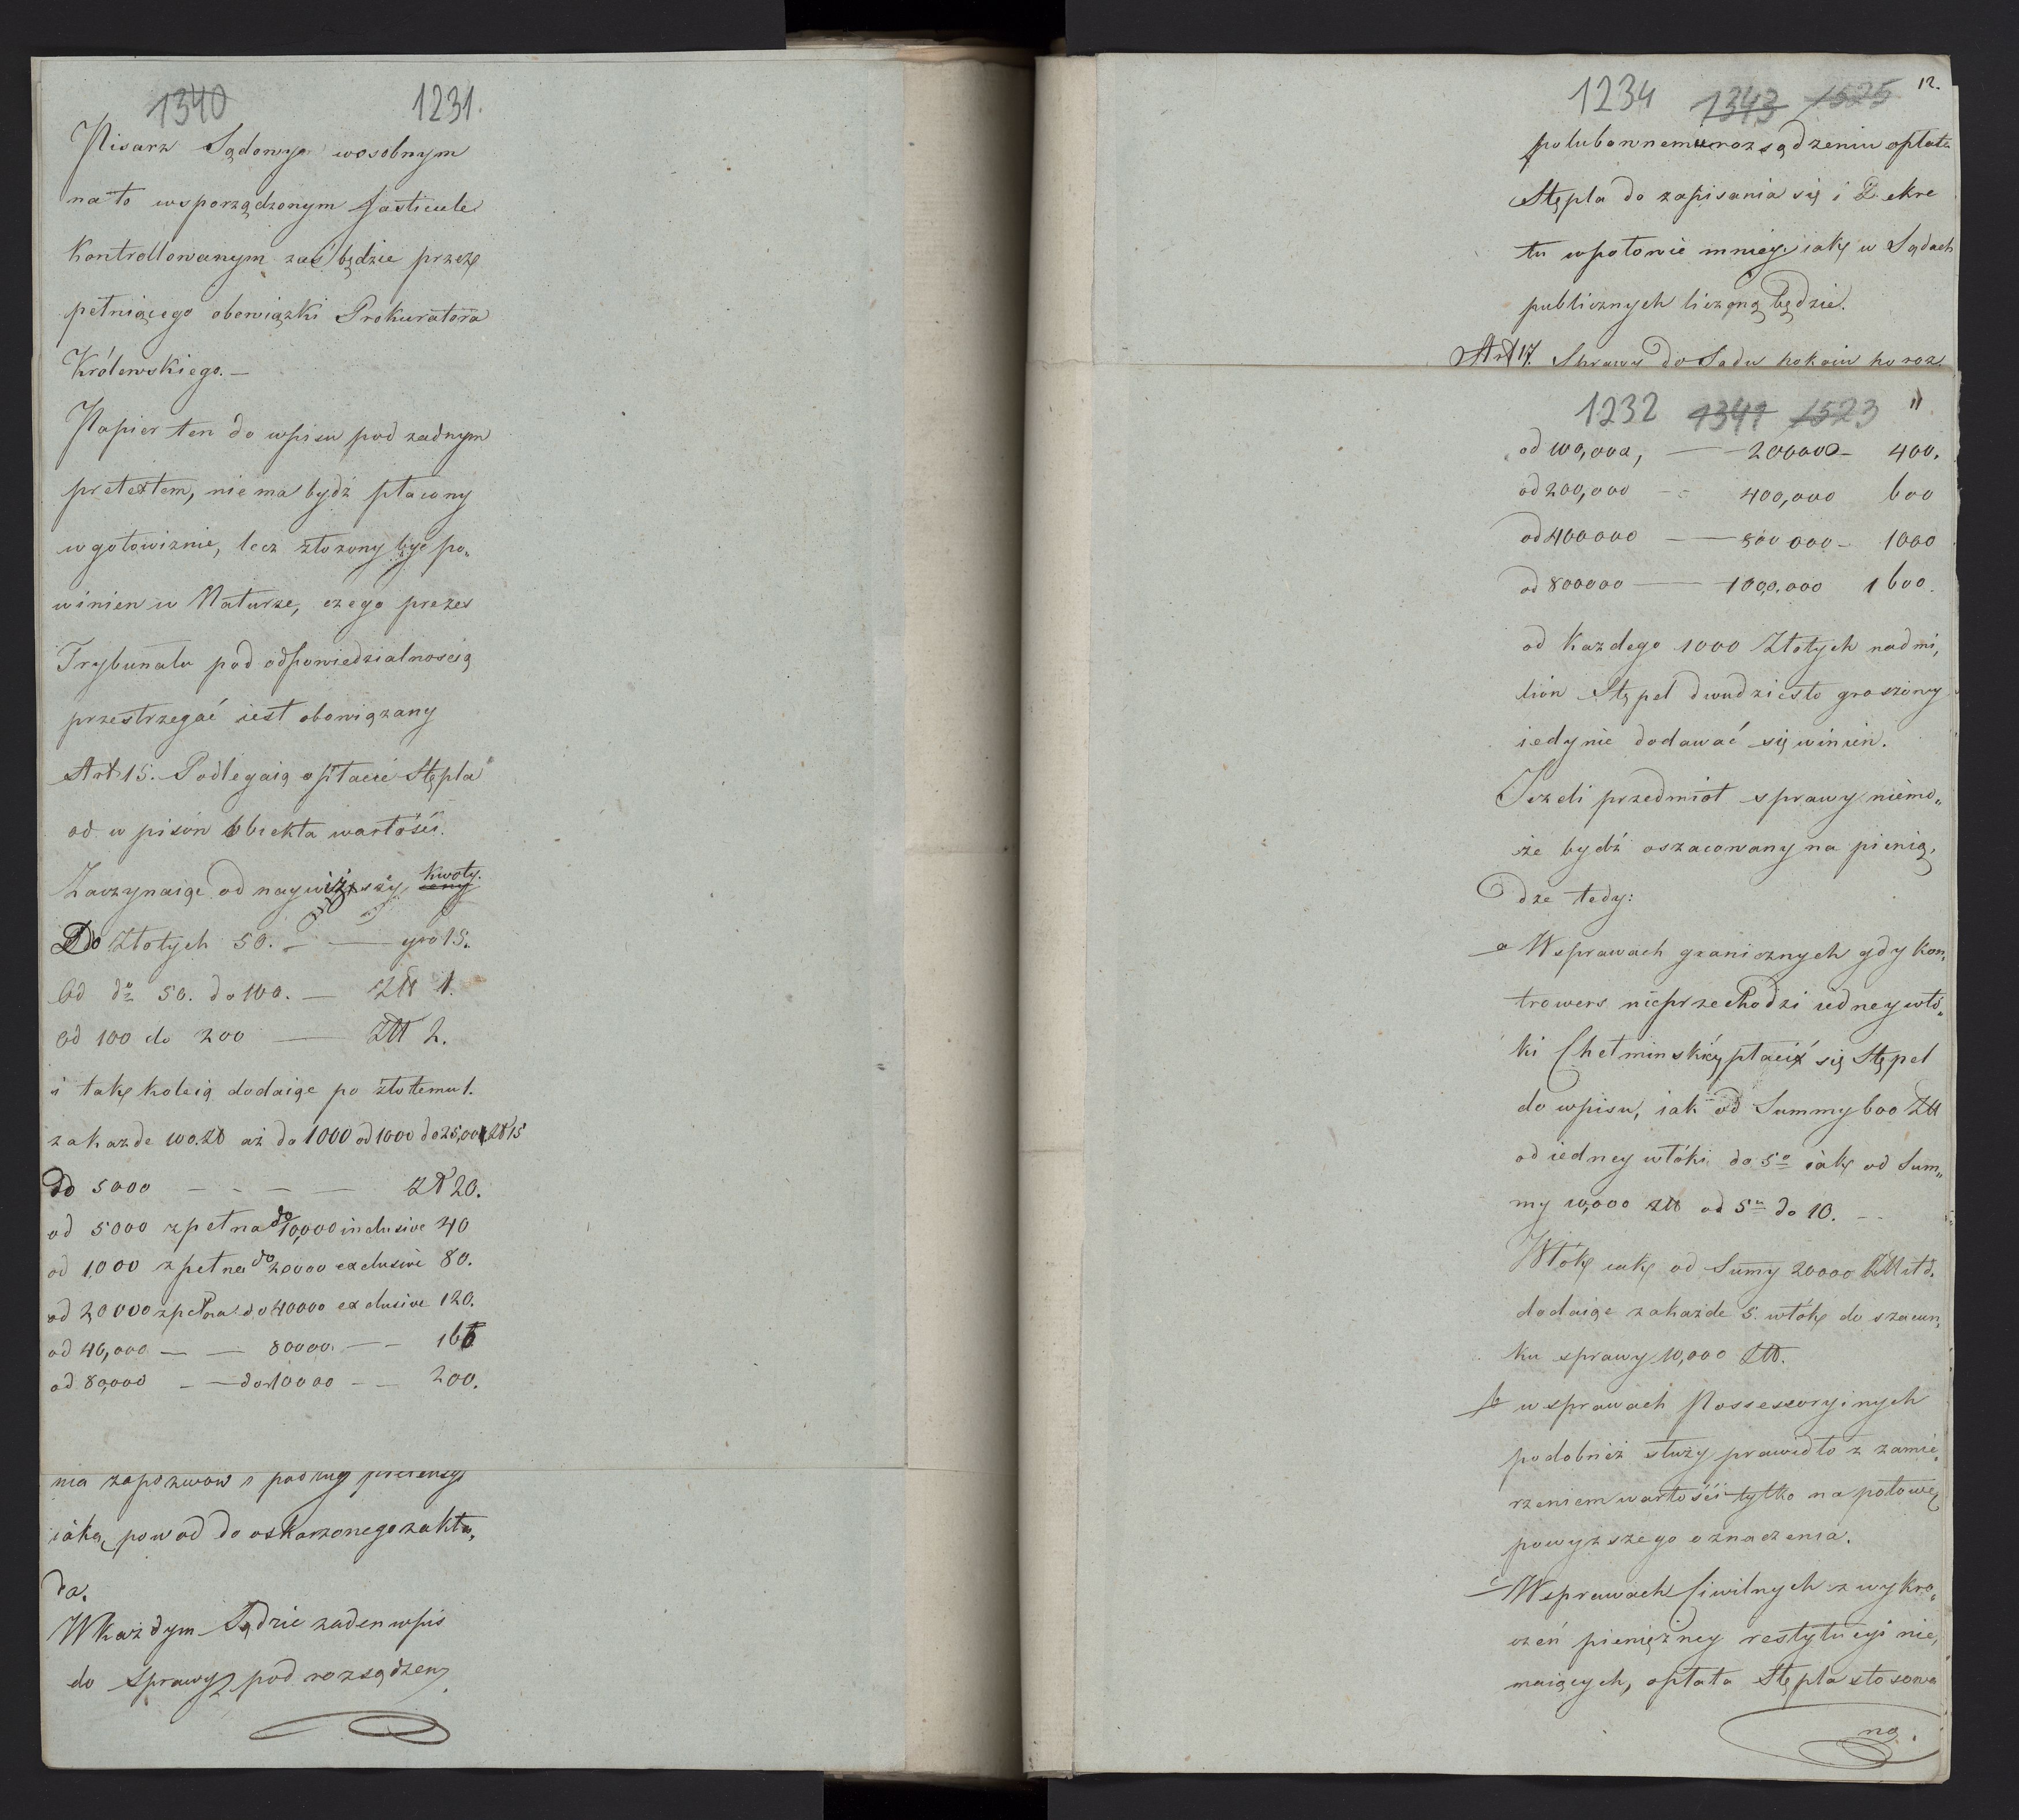 1340 1231.
Pisarz Sądowy w osobnym
na to wsporządzonym fasticule
Kontrollowanym zaś będzie przez
pełniącego obowiązki Prokuratora
Królewskiego. —
Papier ten do wpisu pod zadnym
pretextem, nie ma bydź płacony
w gotowiznie, lecz złożony być po„
winien w Naturze, czego prezes
Trybunału pod odpowiedzialnoscią
przestrzegać iest obowiązany
Art 15. Podlegaią opłacie Stępla
od wpisów Obiekta wartości.
Zaczynaiąc od nayniższy kwoty.
Do Złotych 50. — — gro 15.
Od do 50. do 100. — Złł 1.
Od 100 do 200 — Złł 2.
i tak koleią dodaiąc po złotemu 1.
za kazde 100. Zł aż do 1000 od 1000 do 25,00 Zł 15
do 5000 — — — — Zł 20.
od 5000 zpełna do 10,000 inclusive 40
od 1,000 zpełna do 20000 exclusive 80.
od 20000 zpełna do 40000 exclusive 120.
od 40,000 — — 80000. — — 160
od 80,000 — — do 10000 — — 200.
nia zapozwow i podług pretensyi
iaką powod do oskarzonego zakła„
da.
W każdym Sądzie zaden wpis
do Sprawy pod rozsądzen
1234 1343 1525 12.
polubownemu rozsądzeniu opłata
Stępla do zapisania się i Dekre
tu wpołowie mniey iak w Sądach
publicznych liczoną będzie.
Art 17. Sprawy do Sadu pokoiu po roz
1232 1341 1523 11
od 100,000, — 200000 — 400.
od 200,000 — 400,000 600
od 400000 — 800 000 — 1000
od 800000 — 100,0.000 1600.
od Kazdego 1000 Złotych nad mi„
lión Stępel dwudziesto groszowy
iedynie dodawać się winien.
Jezeli przedmiot sprawy niemo„
że bydź oszacowany na pienią„
dze tedy:
a W sprawach granicznych gdy Kon„
trowers nieprzechodzi iedney włó„
ki Chełminskiéy płacić się Stępel
do wpisu, iak od Summy 600 Złł
od iedney włóki do 5o iak od Sum„
my 10,000 złł od 5u do 10. —
Włók iak od Sumy 20000 Złł itd.
dodaiąc zakażde 5. włók do szacun„
ku sprawy 10,000 Złł.
b w sprawach Possessoryinych
podobnież służy prawidło z zamie„
rzeniem wartości tylko na połowę
powyzszego oznaczenia.
c W sprawach Ciwilnych z wykro„
czeń pienięzney restytucyi nie„
maiących, opłata Stępla stosowa
na.